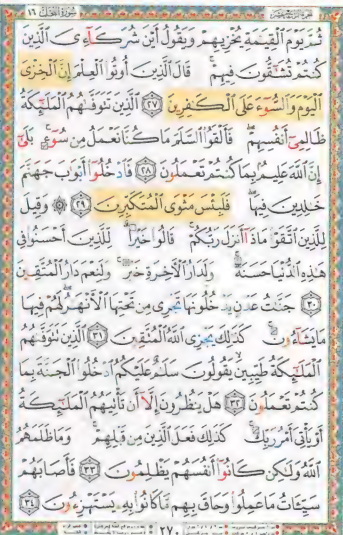 سُورَةُ النَّحْلِ ١٦
ثُمَّ يَوْمَ الْقِيَٰمَةِ يُخْزِيهِمْ وَيَقُولُ أَيْنَ شُرَكَآءِىَ الَّذِينَ
كُنتُمْ تُشَٰٓقُّونَ فِيهِمْ ۚ قَالَ الَّذِينَ أُوتُوا۟ الْعِلْمَ إِنَّ الْخِزْىَ
الْيَوْمَ وَالسُّوٓءَ عَلَى الْكَٰفِرِينَ ٢٧ الَّذِينَ تَتَوَفَّىٰهُمُ الْمَلَٰٓئِكَةُ
ظَالِمِىٓ أَنفُسِهِمْ ۖ فَأَلْقَوُا۟ السَّلَمَ مَا كُنَّا نَعْمَلُ مِن سُوٓءٍۭ ۚ بَلَىٰٓ
إِنَّ اللَّهَ عَلِيمٌۢ بِمَا كُنتُمْ تَعْمَلُونَ ٢٨ فَادْخُلُوٓا۟ أَبْوَٰبَ جَهَنَّمَ
خَٰلِدِينَ فِيهَا ۖ فَلَبِئْسَ مَثْوَى الْمُتَكَبِّرِينَ ٢٩ ۞ وَقِيلَ
لِلَّذِينَ اتَّقَوْا۟ مَاذَآ أَنزَلَ رَبُّكُمْ ۚ قَالُوا۟ خَيْرًا ۗ لِّلَّذِينَ أَحْسَنُوا۟ فِى
هَٰذِهِ الدُّنْيَا حَسَنَةٌ ۚ وَلَدَارُ الْءَاخِرَةِ خَيْرٌ ۚ وَلَنِعْمَ دَارُ الْمُتَّقِينَ
٣٠ جَنَّٰتُ عَدْنٍ يَدْخُلُونَهَا تَجْرِى مِن تَحْتِهَا الْأَنْهَٰرُ ۖ لَهُمْ فِيهَا
مَا يَشَآءُونَ ۚ كَذَٰلِكَ يَجْزِى اللَّهُ الْمُتَّقِينَ ٣١ الَّذِينَ تَتَوَفَّىٰهُمُ
الْمَلَٰٓئِكَةُ طَيِّبِينَ ۙ يَقُولُونَ سَلَٰمٌ عَلَيْكُمُ ادْخُلُوا۟ الْجَنَّةَ بِمَا
كُنتُمْ تَعْمَلُونَ ٣٢ هَلْ يَنظُرُونَ إِلَّآ أَن تَأْتِيَهُمُ الْمَلَٰٓئِكَةُ
أَوْ يَأْتِىَ أَمْرُ رَبِّكَ ۚ كَذَٰلِكَ فَعَلَ الَّذِينَ مِن قَبْلِهِمْ ۚ وَمَا ظَلَمَهُمُ
اللَّهُ وَلَٰكِن كَانُوٓا۟ أَنفُسَهُمْ يَظْلِمُونَ ٣٣ فَأَصَابَهُمْ
سَيِّـَٔاتُ مَا عَمِلُوا۟ وَحَاقَ بِهِم مَّا كَانُوا۟ بِهِۦ يَسْتَهْزِءُونَ ٣٤
٢٧٠